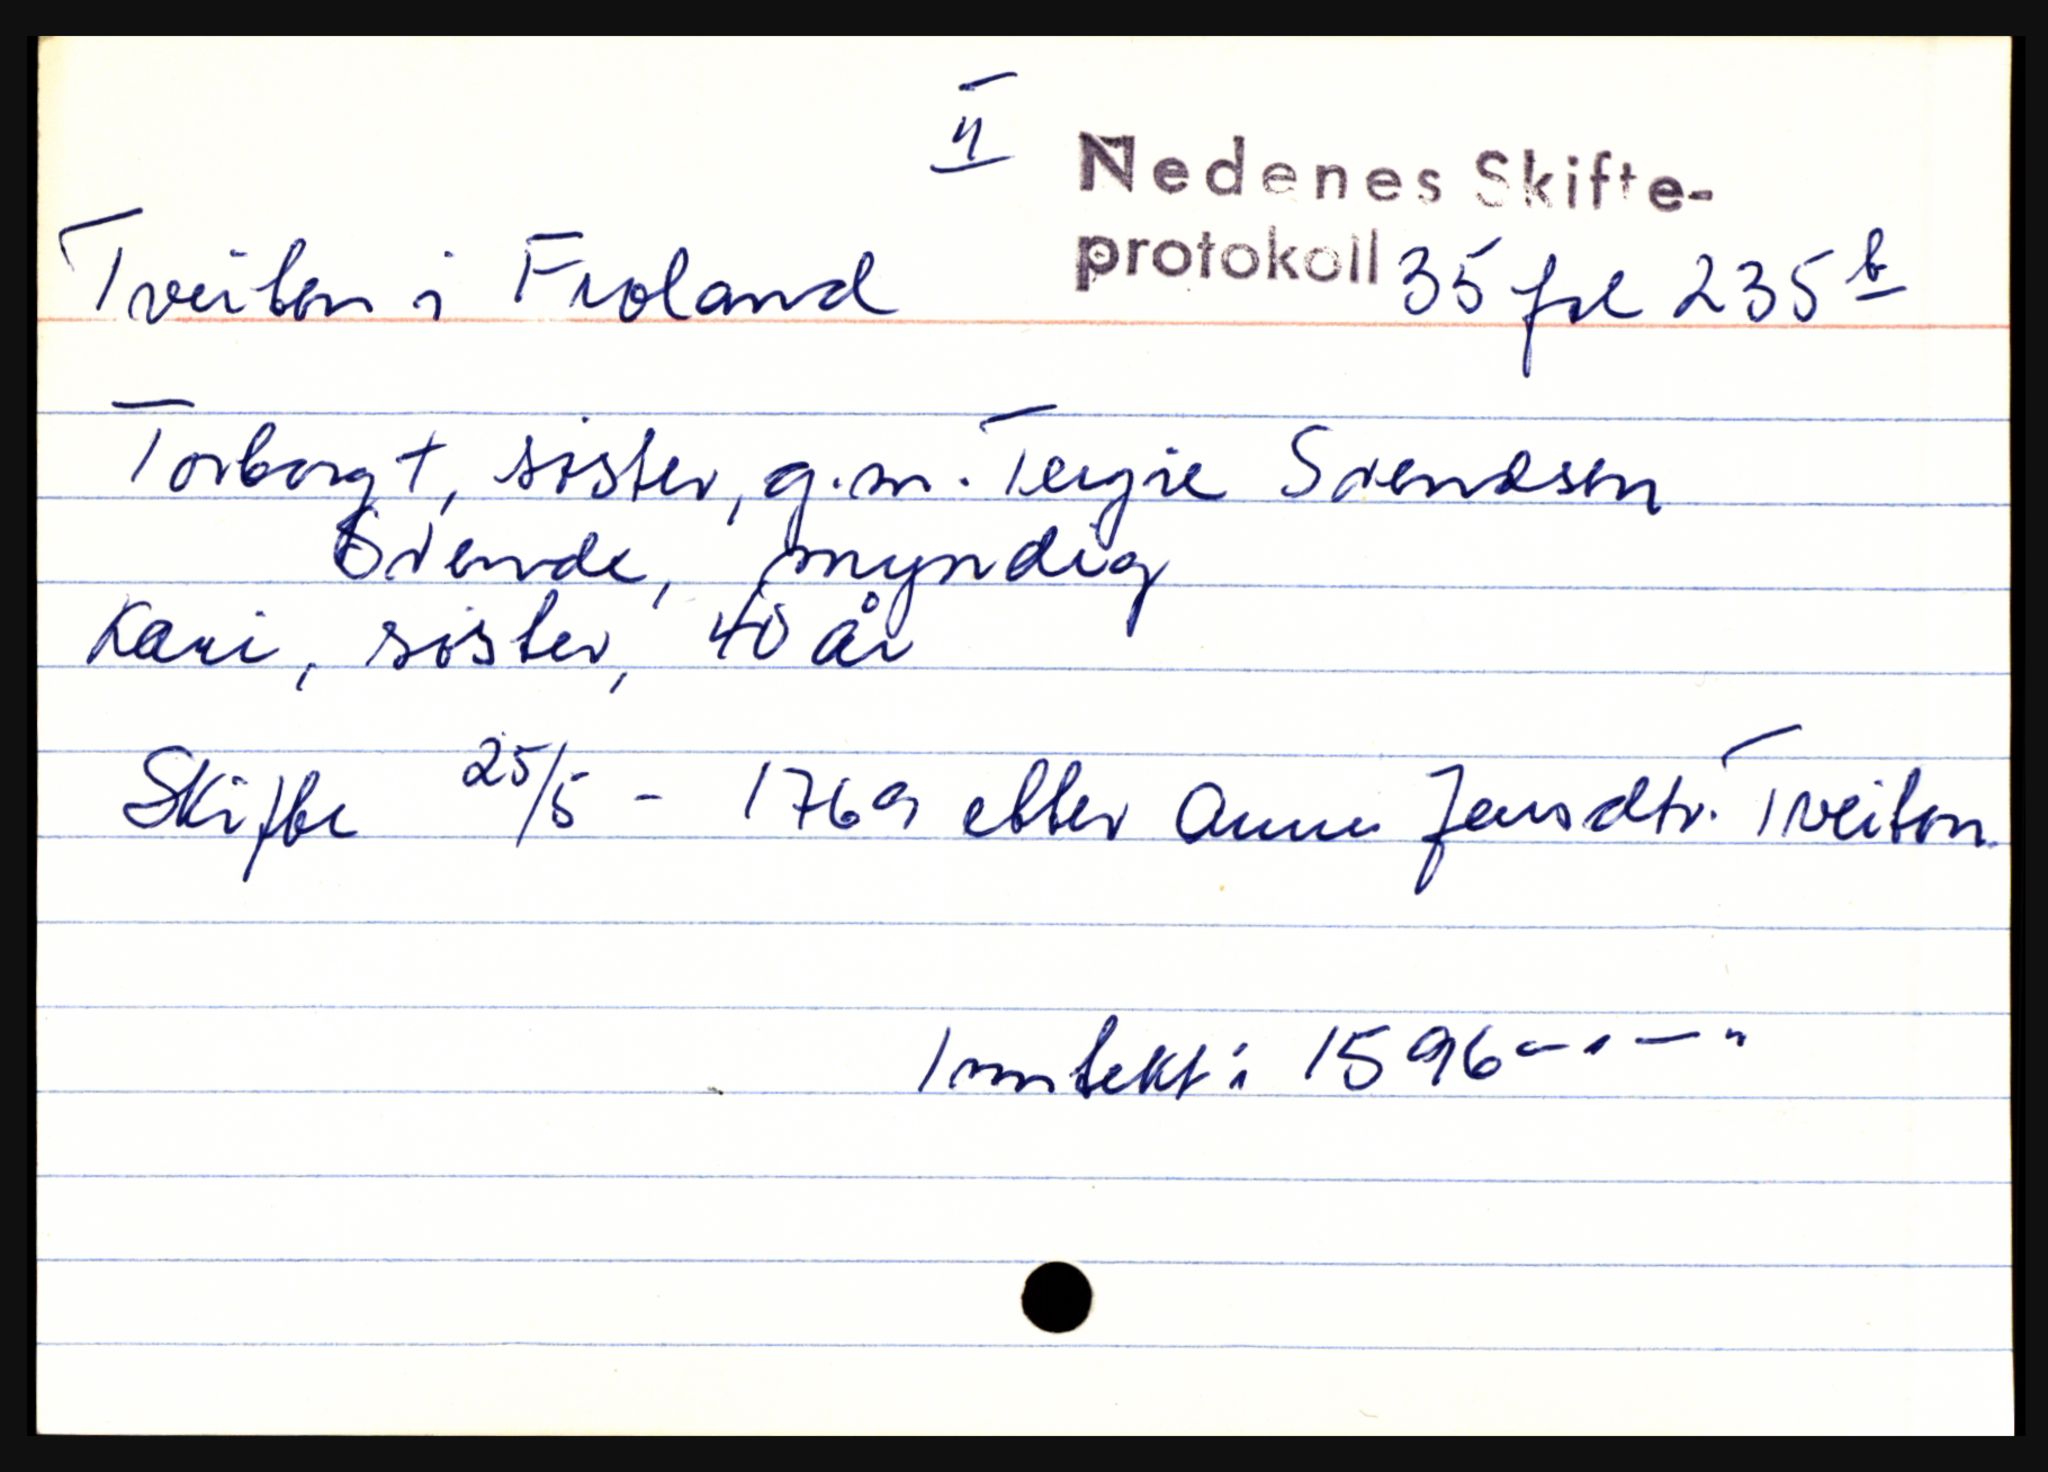 II
Nedenes Skifte-
Tveiten i Froland protokoll 35 fol 235 b
Torborg †, søster, g.m. Tergie Svendsen
Svende, myndig
Kari, søster, 40 år
Skifte 25/5 - 1769 etter Anne Jensdtr. Tveiten.
Inntekt: 1596 - " - "